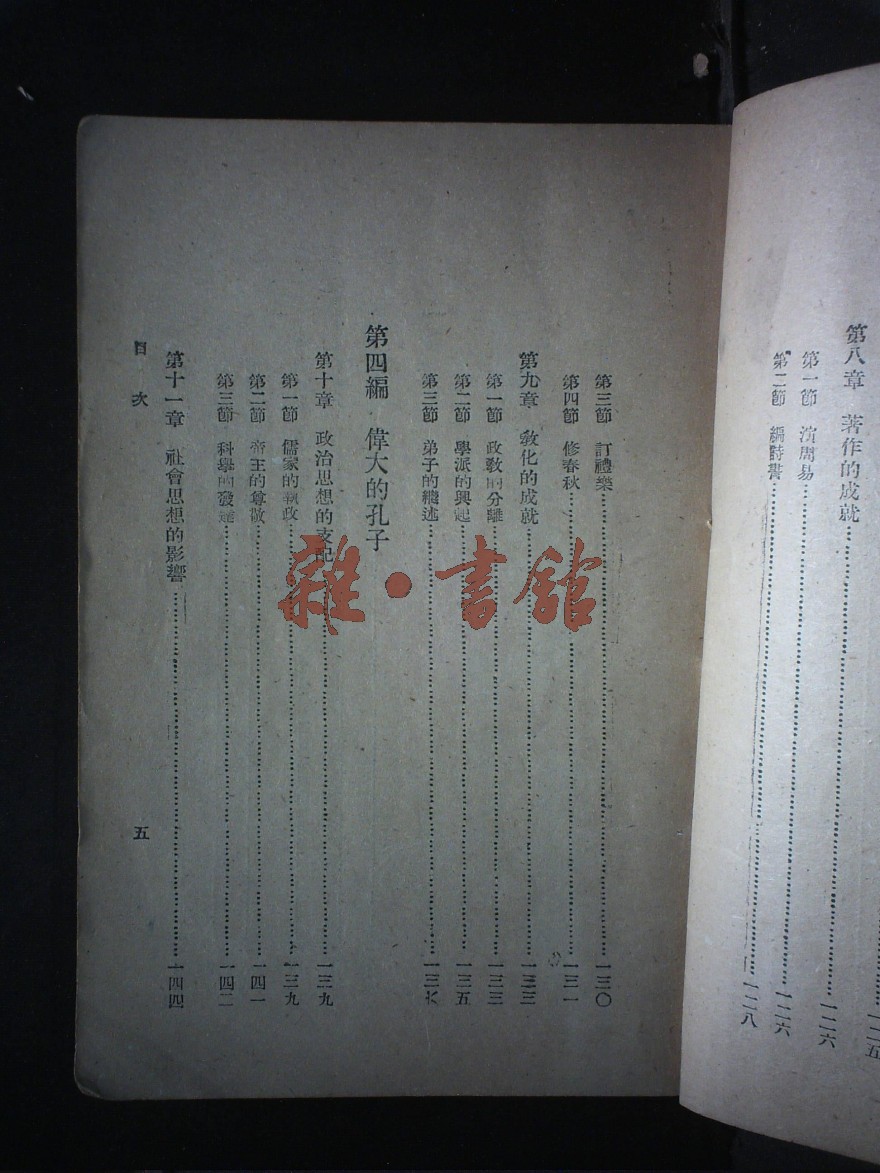 一二五
第八章 著作的成就……………一二六
第一節 演周易……………一二六
第二節 編詩書……………一二八
第三節 訂禮樂……………一三〇
第四節 修春秋……………一三一
第九章 敎化的成就……………一三三
第一節 政敎的分離……………一三三
第二節 學派的興起……………一三五
第三節 弟子的繼述……………一三
第四編 偉大的孔子
第十章 政治思想的支配……………一三九
第一節 儒家的執政……………一三九
第二節 帝王的尊敬……………一四一
第三節 科學的發達……………一四二
第十一章 社會思想的影響……………一四四
目次 五
雜·書館